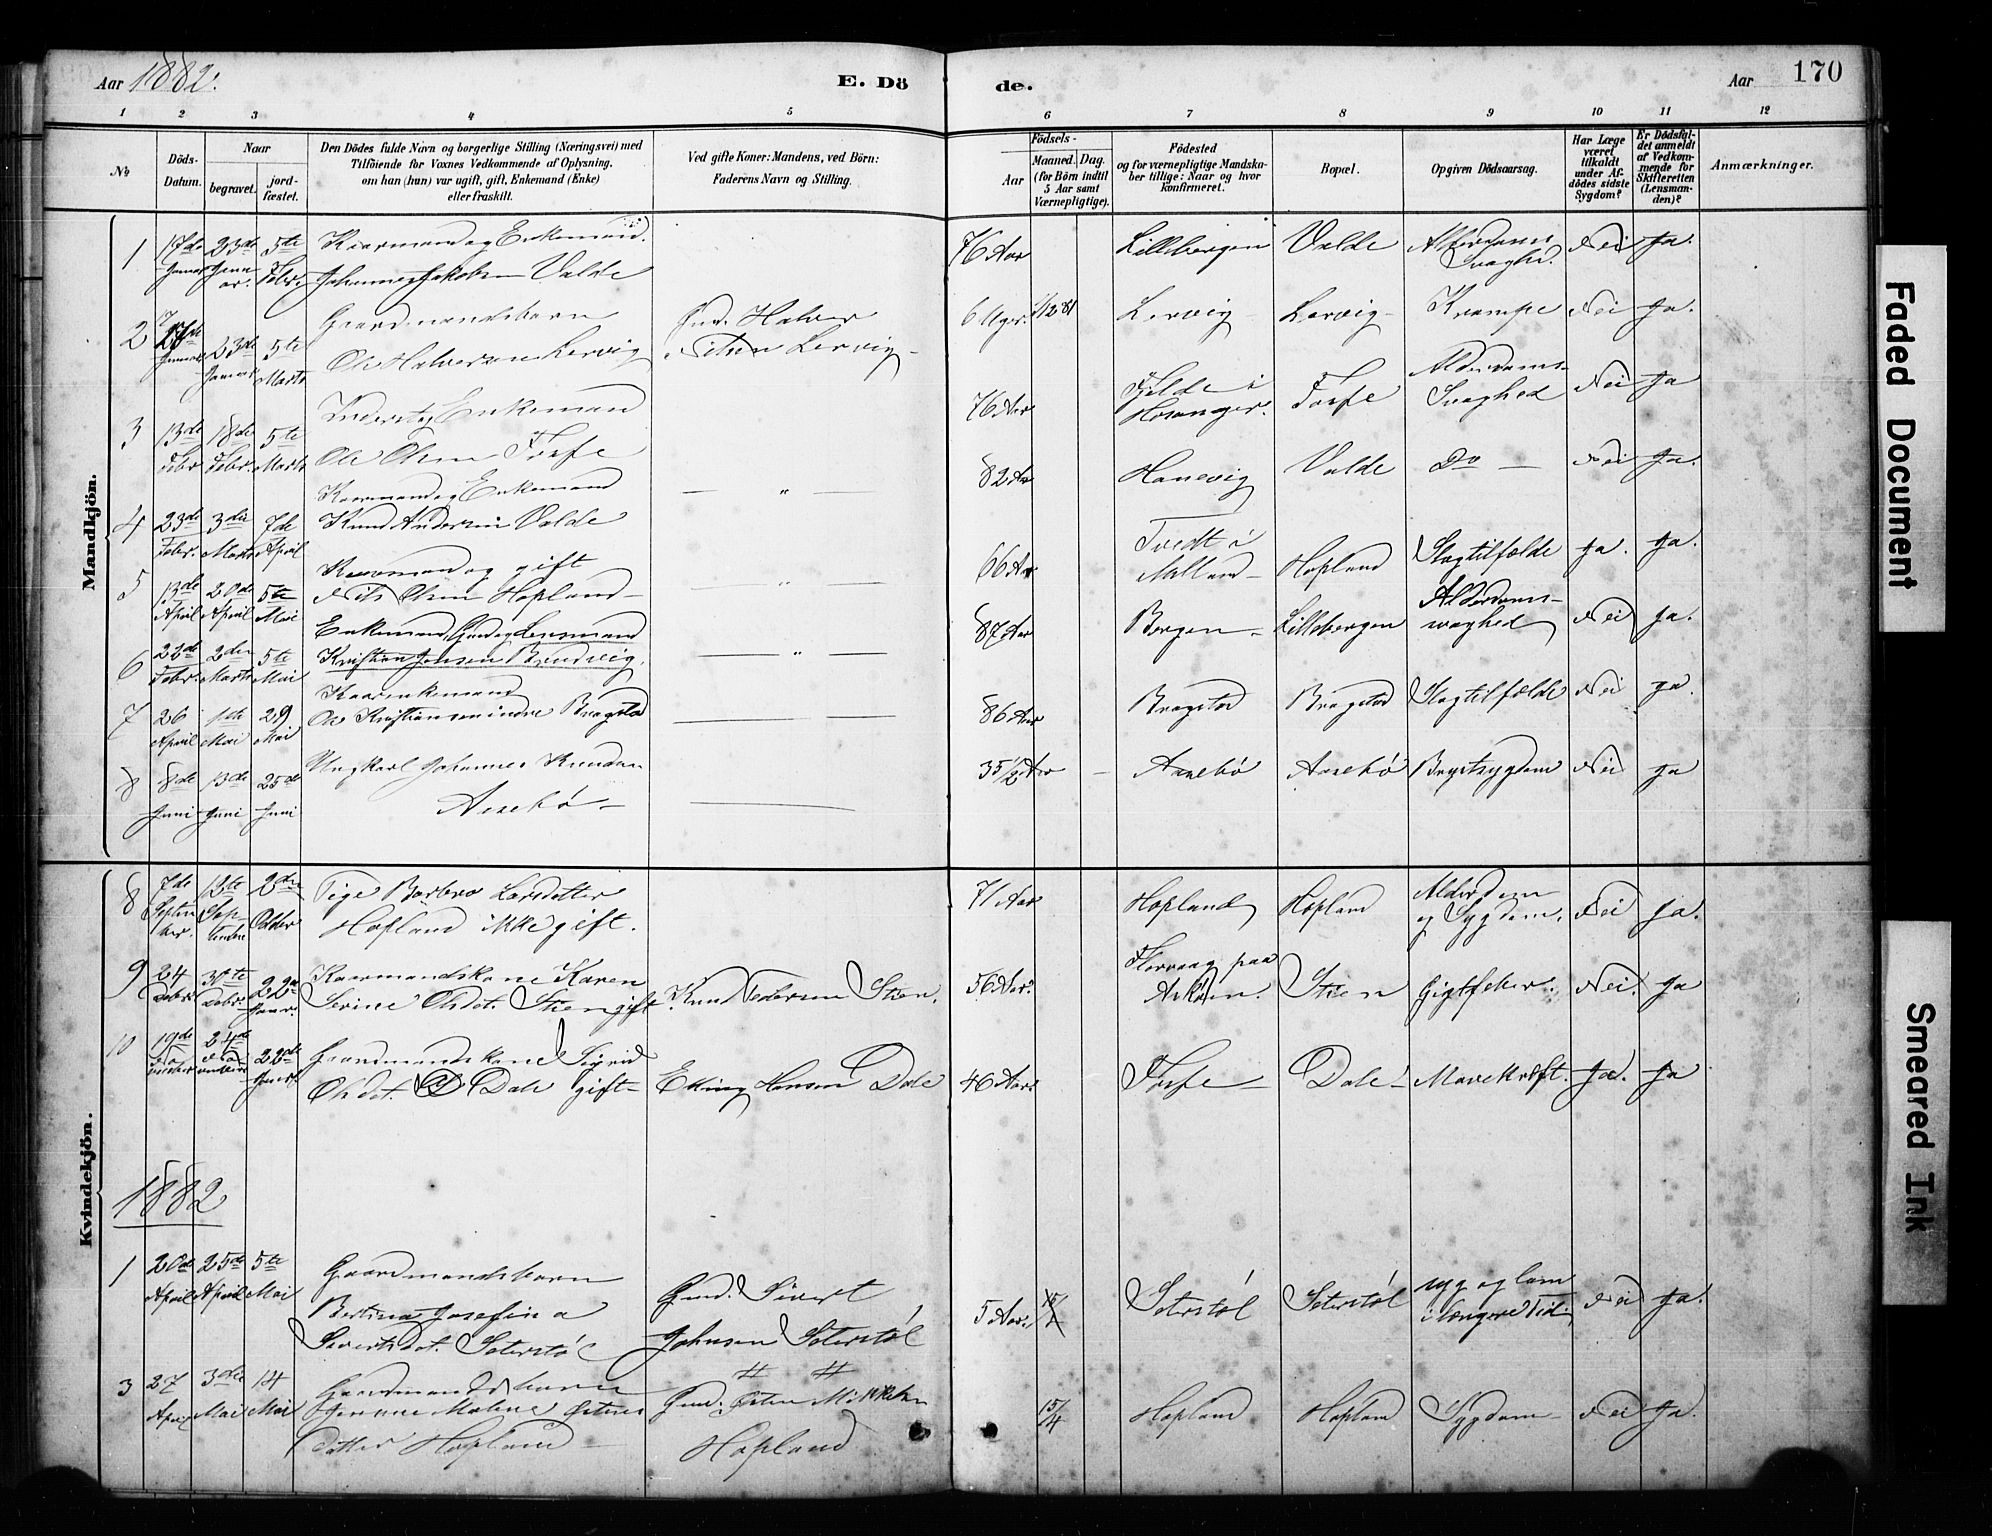 Aar 1882.
E. Dö
de.
Aar
170
1 2 3 4 5 6 7 8 9 10 11 12
No
Döds-
Datum.
Naar
begravet.
jord-
fæstet.
Den Dödes fulde Navn og borgerlige Stilling (Næringsvei) med
Tilföiende for Voxnes Vedkommende af Oplysning.
om han (hun) var ugift, gift, Enkemand (Enke)
eller fraskilt.
Ved gifte Koner: Mandens, ved Börn:
Faderens Navn og Stilling.
Födsels-
Aar
Maaned. Dag.
(for Börn indtil
5 Aar samt
Værnepligtige).
Födested
og for værnepligtige Mandska-
ber tillige: Naar og hvor
konfirmeret.
Bopæl.
Opgiven Dödsaarsag.
Har Læge
været
tilkaldt
under Af-
dödes sidste
Sygdom?
Er Dödsfal-
det anmeldt
af Vedkom-
mende for
Skifteretten
(Lensman-
den)?
Anmærkninger.
Mandkjön.
1 17de Januar 23de Januar. 5te Febr. Kaarmand og Enkemand.
Johannes Jakobsen Valde
76 Aar Lillebergen Valde Alderdoms Svaghd. Nei Ja.
2 Januar 23de Januar 5te Marts Gaardmandsbarn
Ole Halversen Lervig
Gmd. Halver
Nilsen Lervig
6 Uger. Lervig Lervig Krampe Nei Ja.
3 13de Febr 18de Febr. 5te Marts Inderst og Enkemand
Ole Olsen Fosse
76 Aar Fjelde i
Hosanger. Fosse Alderdoms-
Svaghed Nei Ja
4 23de Febr. 3die Marts 7de April Kaarmand og Enkemand
Knud Andersen Valde
— " —
82 Aar Hanevig Valde Do — Nei Ja.
5 13de April 20de April 5te Mai Kaarmand og gift
Nils Olsen Hopland
— " —
66 Aar Tvedt i
Hopland Slagtilfælde Ja. Ja.
6 Febr. 2den Marts 5te Mai Enkemand, Gmd og Lensmand
Kristian Jensen Brudvig.
— " —
87 Aar Bergen Lillebergen Alderdoms-
svaghed Nei Ja.
7 26 April 1ste Mai 29 Mai Kaarenkemand
Ole Kristiansen indre Bragstad
86 Aar Bragstad Bragstad Slagtilfælde Nei Ja.
8 8de Juni 13de Juni 25de Juni Ungkarl Johannes Knudsen
Aasebö
35 1/2 Aar Aasebö Aasebö Brystsygdom Nei Ja
Kvindekjön.
8 7de Septem ber. 12te Sep- tember 2den Oktober Pige Barbro Larsdatter
Hopland ikke gift.
71 Aar Hopland Hopland Alderdom
og Sygdom. Nei Ja.
9 24 Oktbr. Oktbr. 22de Januar. Kaarmandskone Karen
Serine Olsdot. Steen gift
Knud Pedersen Steen.
56 Aar. Florvaag paa
Askøen. Steen Gigtfeber. Nei. Ja
10 19de November 24de November 22de Januar Gaardmandskone Sigrid
Olsdot. Dale gift
Elling Hansen Dale
46 Aar. Fosse Dale Mavekræft. Ja. Ja
1882
1 20de April 25de April 5te Mai Gaardmandsbarn
Bertina Josefina
Sivertsdot. Soterstøl
Gmd. Sivert
Johnsen Soterstøl
5 Aar. Soterstøl Soterstøl syg og lam
i længere Tid Nei Ja.
3 27 April 3die Mai 14 Mai Gaardmandsbarn
Malene Østens
datter Hopland
Gmd. Østen Mikkelsen
Hopland
15/4 Hopland Hopland Sygdom Nei Ja.
Faded Document
Smeared Ink